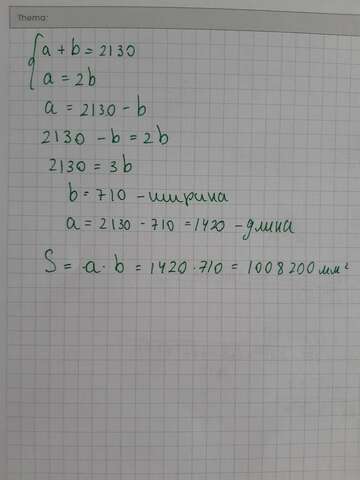 Thema:
a + b = 2130
a = 2b
a = 2130 - b
2130 - b = 2b
2130 = 3b
b = 710 - ширина
a = 2130 - 710 = 1420 - длина
S = a · b = 1420 · 710 = 1008200 мм²